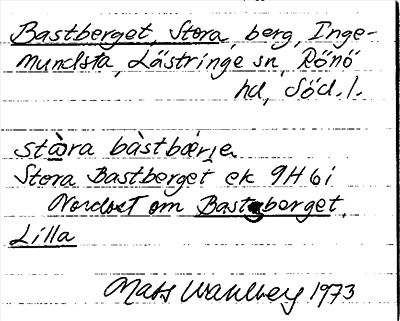 Bastberget, Stora, berg, Inge-
mundsta, Lästringe sn, Rönö
hd, Söd. l.
stòra bàstbǽrje
Stora Bastberget ek 9H 6i
Nordost om Bastberget,
Lilla
Mats Wahlberg 1973